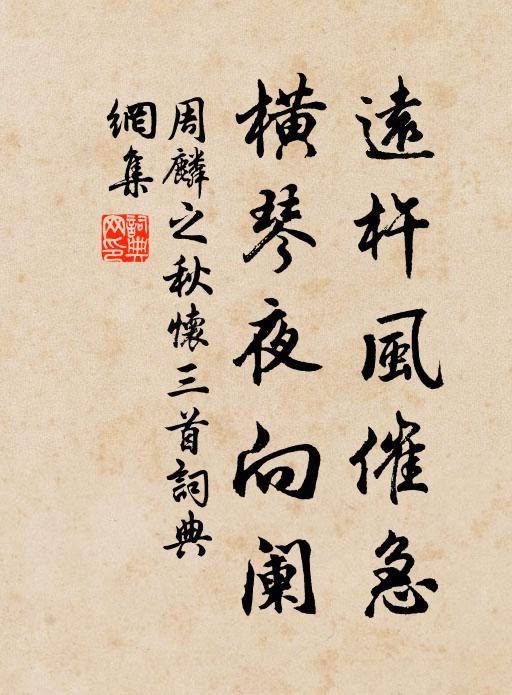 遠杵風催急
橫琴夜向闌
周麟之秋懷三首詞典
網集
詞典
网印